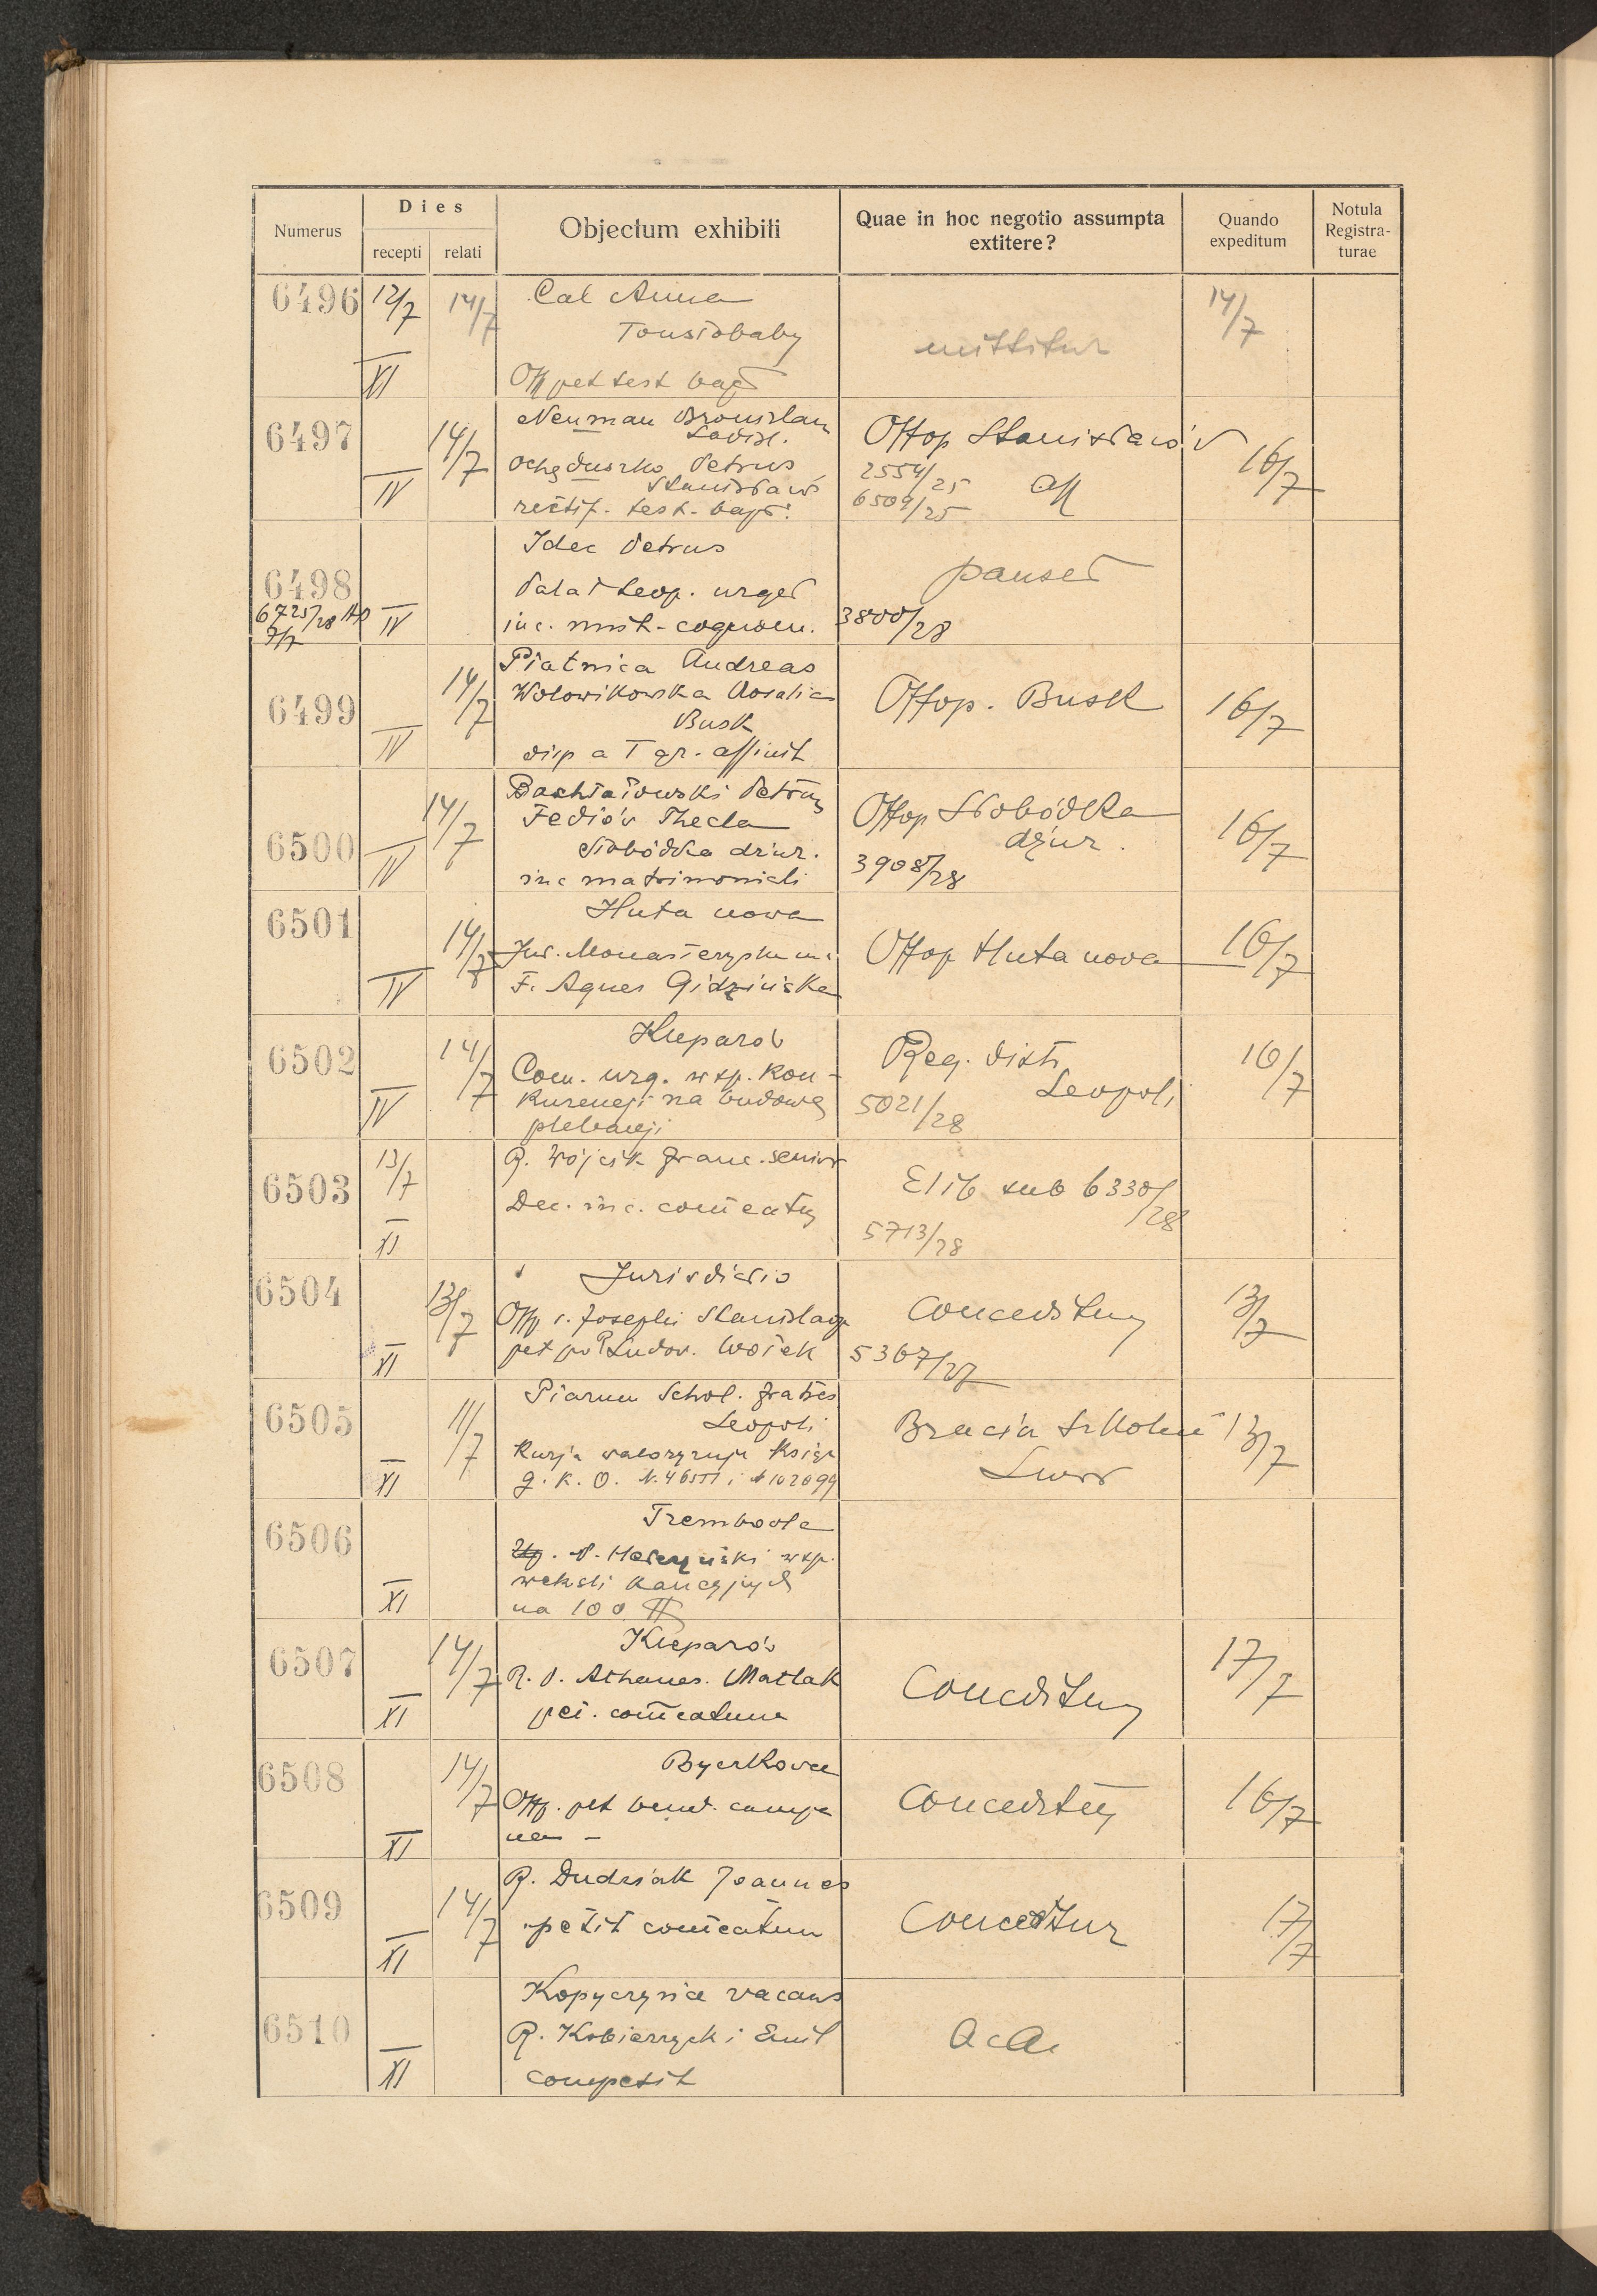 Numerus
Dies
recepti
relati
Objectum exhibiti
Quae in hoc negotio assumpta
extitere?
Quando
expeditum
Notula
Registra-
turae
6496 12/7 14/7 Cal Anna
Tousto baby
mittitur
14/7
XI Off pet test bapt
6497 14/7 Neuman Bronislau
Ladisl.
Offop Stanisławów
16/7
Ochęduszko Petrus
Stanisław
2554/25
6509/25
aff
IV rectif. test. bapt.
6498 Idec Petrus
Palat Leop. urget
pauset
6725/28
IV inc. mut. cognom. 3800/28
6499 14/7 Piatnica Andreas
Wolowikowska Rosalia
Busk
Offop. Busk
16/7
IV disp a I gr. affinit
6500 14/7 Petrus
Fediów Thecla
Słobódka dżur.
Offop Słobódka
dżur.
16/7
IV inc matrimonioli
3908/28
6501 14/7 Huta nova
Offop Huta nova
16/7
IV F. Agnes Gidzińska
6502 14/7 Kleparów
Com. urg. w sp. kon-
kurencji na budowę
plebanji
Reg. distr.
Leopoli
16/7
IV 5021/28
6503 13/7 R. Wójcik Franc. senior
Dec. inc. comeatus
Elib sub 6330/28
XI 5713/28
6504 13/7 Jurisdictio
Off s. Josephi Stanislaop
pet pro P Ludov. Wołek
Conceditur
13/7
XI 5367/27
6505 11/7 Piarum Schol. Fratres
Leopoli
Kurja waloryzuje Książ
Bracia Szkolni
Lwów
13/7
XI
6506 Trembowla
wsp.
weksli kaucyjnych
XI na 100
6507 14/7 Kleparów
R. P. Athanas. Matlak
pet. comeatum
Conceditur
17/7
XI
6508 14/7 Byczkowce
Off. pet bened. campa
nam -
Conceditur
16/7
XI
6509 14/7 R. Dudziak Joannes
petit comeatum
Conceditur
17/7
XI
6510 Kopyczynce vacans
R. Kobierzycki Emil
competit
Acta
XI